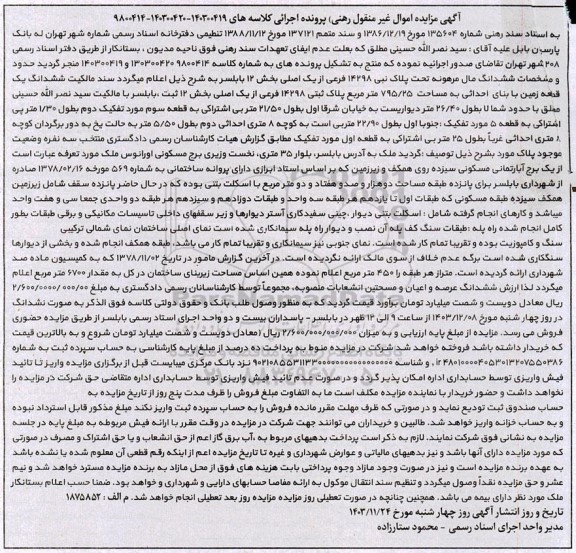 آگهی مزایده اموال غیر منقول رهنی) پرونده اجرائی کلاسه های ۱۴۰۳۰۰۴۱۹-۱۴۰۳۰۰۴۲۰-۹۸۰۰۴۱۴
به استناد سند رهنی شماره ۱۳۵۶۰۴ مورخ ۱۳۸۶/۱۲/۱۹ و سند متمم ۱۳۷۱۲۱ مورخ ۱۳۸۸/۱۱/۱۲ تنظیمی دفترخانه اسناد رسمی شماره شهر تهران له بانک
پارسیان بابل علیه آقای : سید نصر الله حسینی مطلق که بعلت عدم ایفای تعهدات سند رهنی فوق ناحیه مدیون ، بستانکار از طریق دفتر اسناد رسمی
۲۰۸ شهر تهران تقاضای صدور اجرائیه نموده که منتج به تشکیل پرونده های به شماره کلاسه ۹۸۰۰۴۱۴ و ۱۴۰۳۰۰۴۲۰ و ۱۴۰۳۰۰۴۱۹ منجر گردید حدود
و مشخصات ششدانگ مال مرهونه تحت پلاک نبی ۱۴۲۹۸ فرعی از یک اصلی بخش ۱۲ بابلسر به شرح ذیل اعلام میگردد سند مالکیت ششدانگ یک
قطعه زمین با بنای احداثی به مساحت ۷۹۵/۲۵ متر مربع پلاک ثبتی ۱۴۲۹۸ فرعی از یک اصلی بخش ۱۲ ثبت ،بابلسر با مالکیت سید نصر الله حسینی
مطلق با حدود شما لا بطول ۲۶/۴۰ متر دیواریست به خیابان شرقا اول بطول ۲۱/۵۰ متر پی اشتراکی به قطعه سوم مورد تفکیک دوم بطول ۱/۳۰ متر پی
اشتراکی به قطعه ۵ مورد تفکیک ؛جنوبا اول بطول ۲۲/۹۰ متریی است به کوچه ۸ متری احداثی دوم بطول ۵/۵۰ متر به حالت پخ به دور برگردان کوچه
۸ متری احداثی غرباً بطول ۲۵ متر پی اشتراکی به قطعه اول مورد تفکیک مطابق گزارش هیات کارشناسان رسمی دادگستری منتخب سه نفره وضعیت
موجود پلاک مورد بشرح ذیل توصیف ؛گردید ملک به آدرس بابلسر، بلوار ۳۵ متری، نخست وزیری برج مسکونی اورانوس ملک مورد تعرفه عبارت است
از یک برج آپارتمانی مسکونی سیزده روی همکف و زیرزمین که بر حسب استاد ابرازی دارای پروانه ساختمانی به شماره ۵۶۹ مورخه ۱۳۷۸/۰۲/۱۶ صادره
از شهرداری بابلسر برای پانزده طبقه مساحت دو هزار و هفتاد و دو متر مربع با اسکلت بتنی بوده که در حال حاضر پانزده سقف شامل زیرزمین
همکف سیزده طبقه مسکونی که طبقات اول تا یازدهم هر طبقه سه واحد و طبقات دوازدهم و سیزدهم هر طبقه دو واحدی جمعا سی و هفت واحد
میباشد و کارهای انجام گرفته شامل : اسکلت بتنی دیوار ،چینی سفیدکاری آستر دیوارها و زیر سقفهای داخلی تاسیسات مکانیکی و برقی طبقات بطور
کامل انجام شده راه پله ؛طبقات سنگ کف پله آن نصب و دیوار راه پله سیمانکاری شده است نمای اصلی ساختمان نمای شمالی ترکیبی
سنگ و کامپوزیت بوده و تقریبا تمام کار شده است. نمای جنوبی نیز سیمانکاری و تقریبا تمام کار می باشد. طبقه همکف انجام شده و بخشی از دیوارها
سنگکاری شده است برگه عدم خلاف از سوی مالک ارائه نگردیده است. در آخرین گزارش مامور در تاریخ ۱۳۷۸/۱۱/۰۲ که به کمیسیون ماده صد
شهرداری ارائه گردیده است. متراژ هر طبقه را ۴۵۰ متر مربع اعلام نموده همین اساس مساحت زیربنای ساختمان در کل به مقدار ۶۷۰۰ متر مربع اعلام
میگردد لذا ارزش ششدانگ عرصه و اعیان و مسحتین انشعابات منصوبه، مجموعاً توسط کارشناسانان رسمی دادگستری به مبلغ ۲/۶۰۰/۰۰۰/ ۰۰۰/۰۰۰
ریال معادل دویست و شصت میلیارد تومان برآورد قیمت گردید که به منظور وصول طلب بانک و حقوق دولتی کلاسه فوق الذکر به صورت نشدانگ
در روز چهار شنبه مورخ ۱۴۰۳/۱۲/۰۸ از ساعت ۹ الی ۱۲ ظهر در بابلسر - پاسداران بیست و دو واحد اجرای اسناد رسمی بابلسر از طریق مزایده حضوری
فروش می رسد. مزایده از مبلغ پایه ارزیابی و به میزان ۲/۶۰۰/۰۰۰/۰۰۰/۰۰۰ ریال (معادل دویست و شصت میلیارد تومان شروع و به بالاترین قیمت
که خریدار داشته باشد فروخته خواهد شد؛ شرکت در مزایده منوط به پرداخت ده درصد از مبلغ پایه کارشناسی به حساب سپرده ثبت به شماره
نزد بانک مرکزی میبایست قبل از برگزاری مزایده واریز تا تائید
فیش واریزی توسط حسابداری اداره امکان پذیر گردد و در صورت عدم تائید فیش واریزی توسط حسابداری اداره متقاضی حق شرکت در مزایده را
نخواهد داشت و حضور خریدار یا نماینده مزایده مکلف است ما به التفاوت مبلغ فروش را ظرف مدت پنج روز از تاریخ مزایده به
حساب صندوق ثبت تودیع نماید و در صورتی که ظرف مهلت مقرر مانده فروش را به حساب سپرده ثبت واریز نکند مبلغ مذکور قابل استرداد نبوده
و به حساب خزانه واریز خواهد شد. طالبین و خریداران می توانند جهت شرکت در مزایده در وقت مقرر با ارائه فیش مربوطه به مبلغ پایه در جلسه
مزایده به نشانی فوق شرکت نمایند. لازم به ذکر است پرداخت بدهیهای مربوط به ،آب برق گاز اعم از حق انشعاب و یا حق اشتراک و مصرف در صورتی
که مورد مزایده دارای آنها باشد و نیز بدهیهای مالیاتی و عوارض شهرداری و غیره تا تاریخ مزایده اعم از اینکه رقم قطعی آن معلوم شده یا نشده باشد
به عهده برنده مزایده است و نیز در صورت وجود مازاد وجوه پرداختی بابت هزینه های فوق از محل مازاد به برنده مزایده مسترد خواهد شد و نیم
عشر و حق مزایده نقداً وصول میگردد و تنظیم سند انتقال موکول به ارائه مفاصا حسابهای دارایی و شهرداری و خواهد بود. ضمنا حسب اعلام بستانکار
ملک مورد نظر دارای بیمه می باشد. همچنین چنانچه در صورت تعطیلی روز مزایده مزایده روز بعد تعطیلی انجام خواهد شد. م الف : ۱۸۷۵۸۵۲
تاریخ و روز انتشار آگهی روز چهار شنبه مورخ ۱۴۰۳/۱۱/۲۴
مدیر واحد اجرای اسناد رسمی - محمود ستارزاده